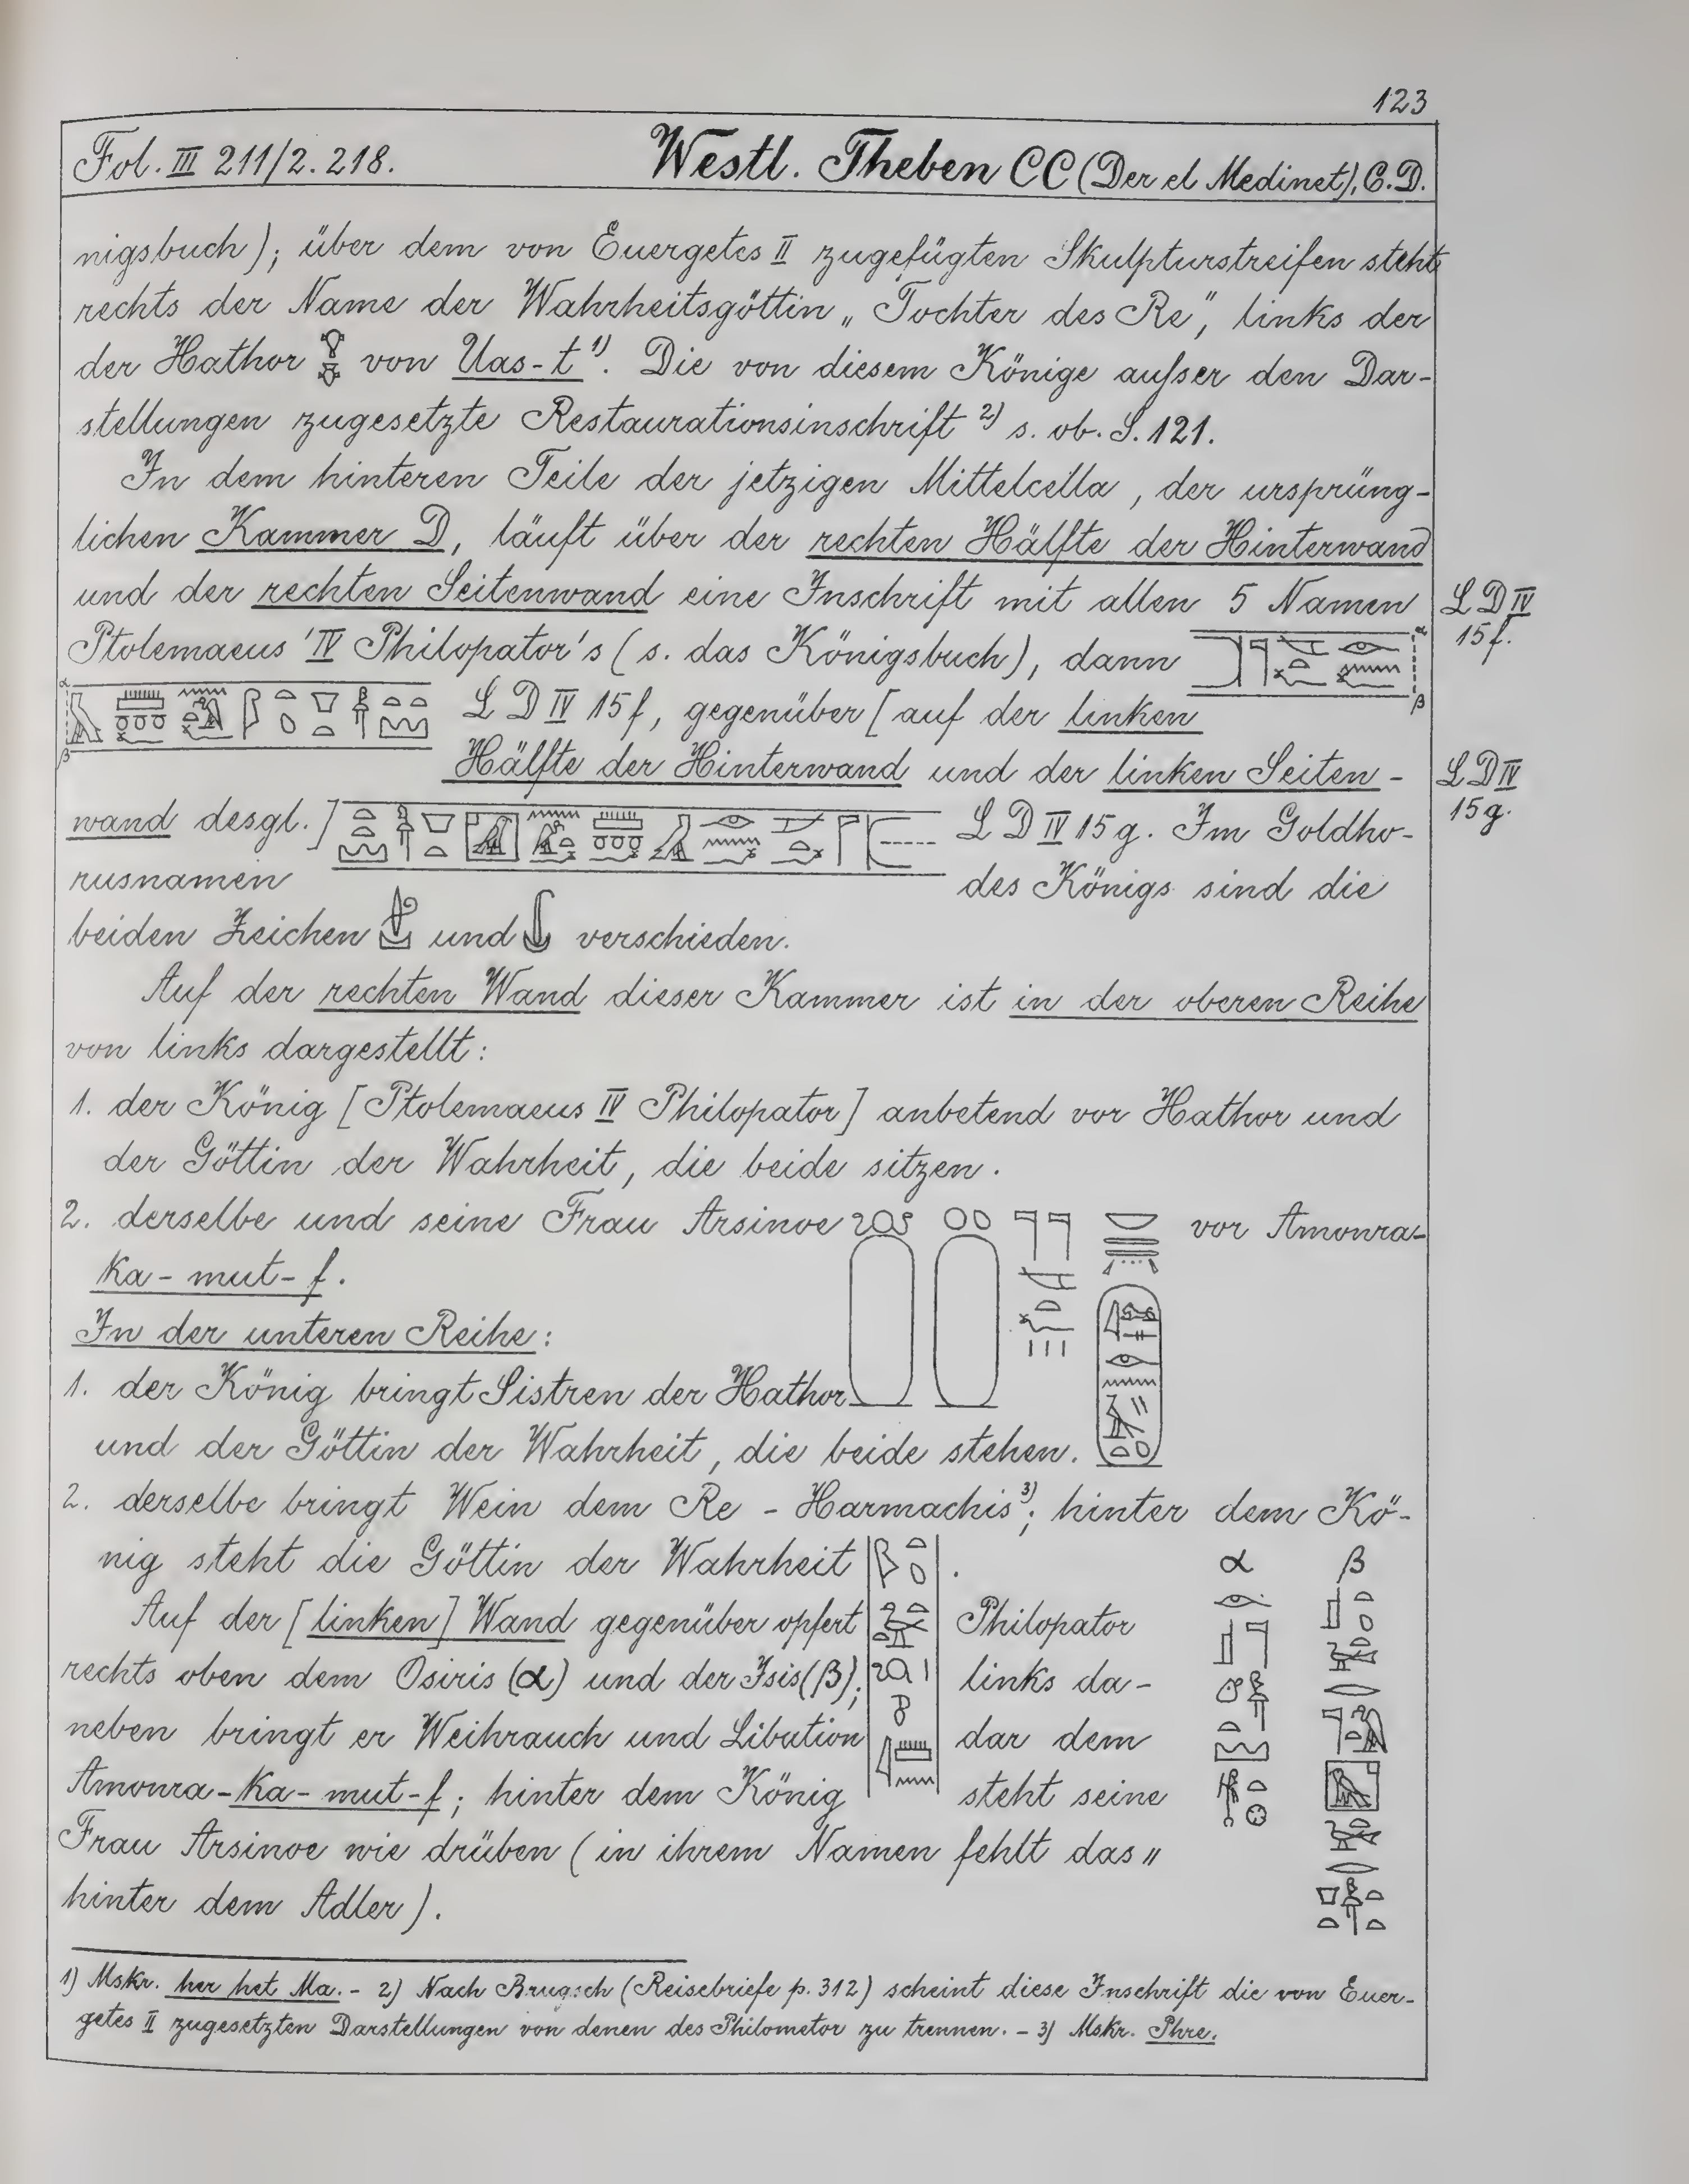 123
Fol. III 211/2. 218. Westl. Theben CC (Der el Medinet), C.D.
nigsbuch); über dem von Euergetes II zugefügten Skulpturstreifen steht
rechts der Name der Wahrheitsgöttin „Tochter des Re", links der
der Hathor von Uas-t 1). Die von diesem Könige ausser den Dar-
stellungen zugesetzte Restaurationsinschrift 2) s. ob. S. 121.
In dem hinteren Teile der jetzigen Mittelcella, der ursprüng-
lichen Kammer D, läuft über der rechten Hälfte der Hinterwand
und der rechten Seitenwand eine Inschrift mit allen 5 Namen
LD IV
15f.
Ptolemaeus 'IV Philopator's (s. das Königsbuch), dann
α
β
α
β
LD IV 15f, gegenüber [auf der linken
Hälfte der Hinterwand und der linken Seiten-
LD IV
15g.
wand desgl.] LD IV 15g. Im Goldho-
rusnamen des Königs sind die
beiden Zeichen und verschieden.
Auf der rechten Wand dieser Kammer ist in der oberen Reihe
von links dargestellt:
1. der König [Ptolemaeus IV Philopator] anbetend vor Hathor und
der Göttin der Wahrheit, die beide sitzen.
2. derselbe und seine Frau Arsinoe vor Amonra-
Ka-mut-f.
In der unteren Reihe:
1. der König bringt Sistren der Hathor
und der Göttin der Wahrheit, die beide stehen.
2. derselbe bringt Wein dem Re - Harmachis 3); hinter dem Kö-
nig steht die Göttin der Wahrheit .
α β
Auf der [linken] Wand gegenüber opfert Philopator
rechts oben dem Osiris (α) und der Isis (β); links da-
neben bringt er Weihrauch und Libation dar dem
Amonra-Ka-mut-f; hinter dem König steht seine
Frau Arsinoe wie drüben (in ihrem Namen fehlt das \\
hinter dem Adler).
1) Mskr. her het Ma. - 2) Nach Brugsch (Reisebriefe p. 312) scheint diese Inschrift die von Euer-
getes II zugesetzten Darstellungen von denen des Philometor zu trennen. - 3) Mskr. Phre.